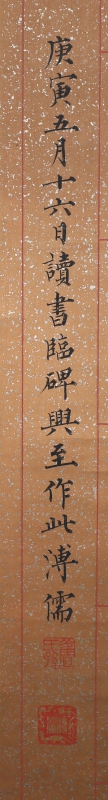 庚寅五月十六日讀書臨碑興至作此溥儒